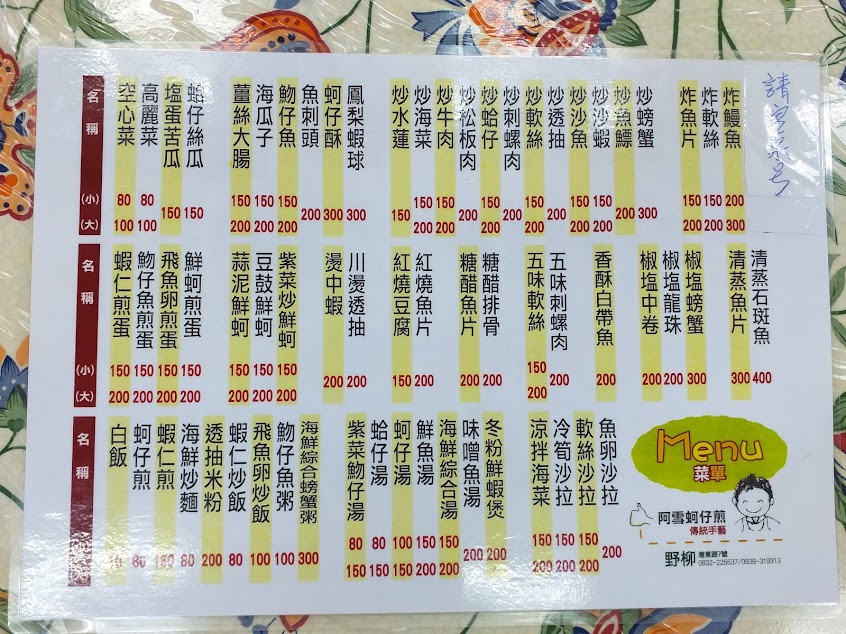 名稱 (小) (大)
空心菜 80 100
高麗菜 80 100
塩蛋苦瓜 150
蛤仔絲瓜 150
薑絲大腸 150 200
海瓜子 150 200
魩仔魚 150 200
魚刺頭 200
蚵仔酥 300
鳳梨蝦球 300
炒水蓮 150
炒海菜 150 200
炒牛肉 150 200
炒松板肉 200
炒蛤仔 150 200
炒刺螺肉 200
炒軟絲 150 200
炒透抽 200
炒沙魚 150 200
炒沙蝦 150 200
炒魚鰾 200
炒螃蟹 300
炸魚片 150 200
炸軟絲 150 200
炸鰻魚 200 300
請寫桌号
名稱 (小) (大)
蝦仁煎蛋 150 200
魩仔魚煎蛋 150 200
飛魚卵煎蛋 150 200
鮮蚵煎蛋 150 200
蒜泥鮮蚵 150 200
豆鼓鮮蚵 150 200
紫菜炒鮮蚵 150 200
燙中蝦 200
川燙透抽 200
紅燒豆腐 150
紅燒魚片 200
糖醋魚片 200
糖醋排骨 200
五味軟絲 150 200
五味刺螺肉 200
香酥白帶魚 200
椒塩中卷 200
椒塩龍珠 200
椒塩螃蟹 300
清蒸魚片 300
清蒸石斑魚 400
名稱 (小) (大)
白飯 10
蚵仔煎 80
蝦仁煎 100
海鮮炒麵 80
透抽米粉 200
蝦仁炒飯 80
飛魚卵炒飯 100
魩仔魚粥 100
海鮮綜合螃蟹粥 300
紫菜魩仔湯 80 150
蛤仔湯 80 150
蚵仔湯 100 150
鮮魚湯 150 200
海鮮綜合湯 150 200
味噌魚湯 200
冬粉鮮蝦煲 200
涼拌海菜 150 200
冷筍沙拉 150 200
軟絲沙拉 150 200
魚卵沙拉 200
Menu
菜單
阿雪蚵仔煎
傳統手藝
野柳 港東路7號
0932-225537/0939-319313